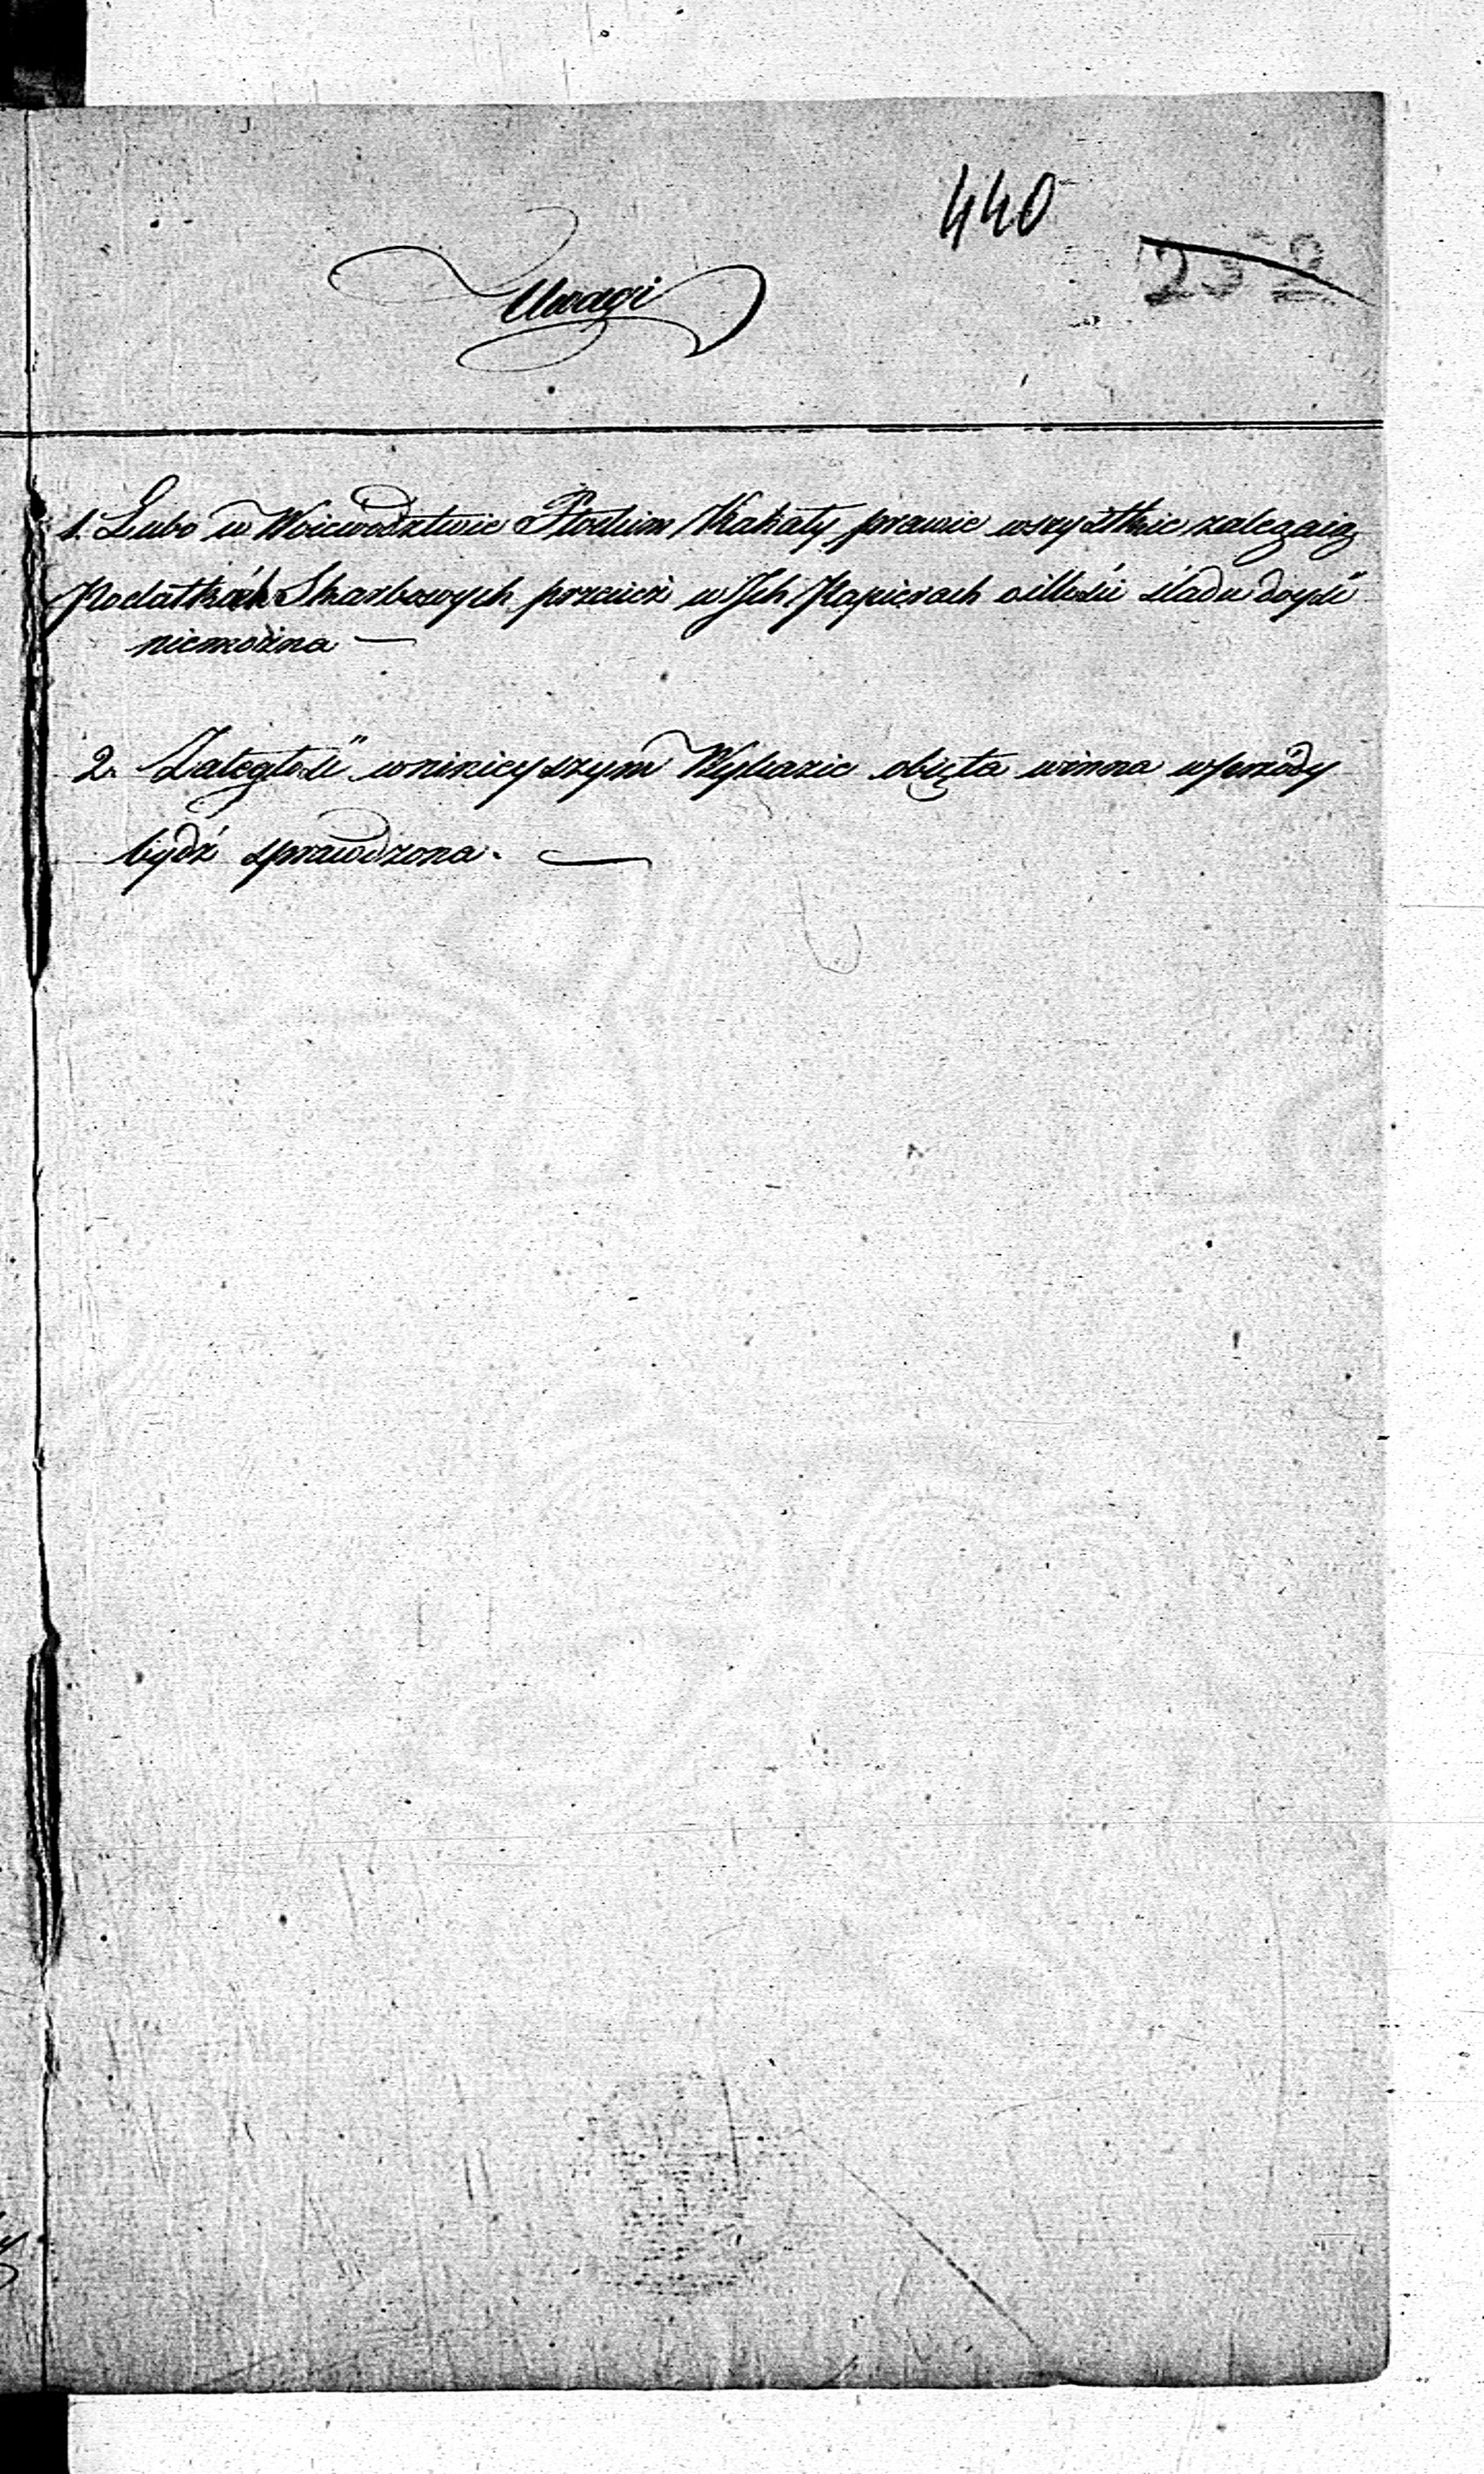 440
232
Uwagi
1. Lubo w Woiewództwie Płockim Kahały prawie wszystkie zalegaią
Podatkach Skarbowych przecież w Ich Papierach o illości śladu doyść
niemożna —
2. Zaległość w ninieyszym Wykazie obięta winna wprzódy
bydź sprawdzona. —